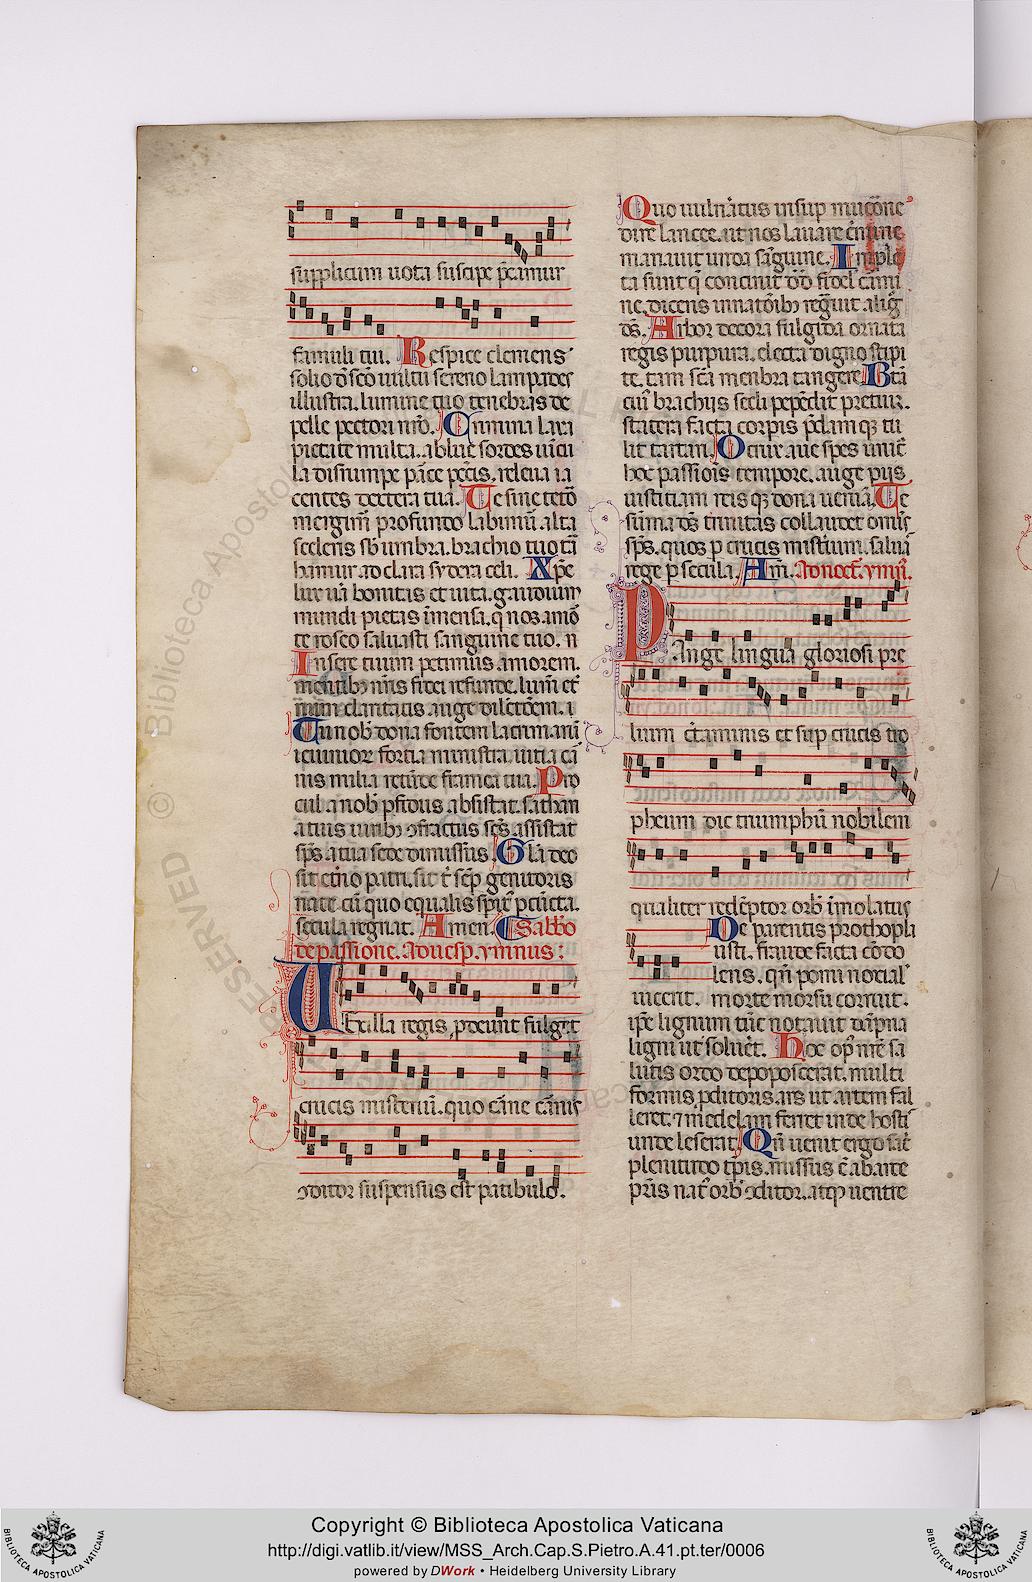 supplicum uota suscipe p̄camur
famuli tui. Respice clemens
solio d̄ sc̄o uultu sereno lampades
illustra. lumine tuo tenebras de
pelle pectori nr̄o. Crimina laua
pietate multa. ablue sordes uincu
la disrumpe parce pc̄cis. releua ia
centes dextera tua. Te sine tetro
mergimur profundo labimur alta
sceleris sb̄ umbra. brachio tuo tra
hamur ad clara sydera celi. Xp̄e
lux uera bonitas et uita. gaudium
mundi pietas īmensa. q̄ nos a mor
te roseo saluasti sanguine tuo.
Insere tuum petimus amorem.
mentib nr̄is fidei refunde. lum̄ et̄
num claritatis auge dilectōem.
Tu nob̄ dona fontem lacrimarum
ieiunior̄ fortia ministra. uitia car
nis milia retunde framea tua. Pro
cul a nob̄ perfidus absistat. sathan
a tuis uiribus ɔfractus sc̄s assistat
sp̄s a tua sede dimissus. Glā deo
sit et̄no patri. sit t̄ semp̄ genitoris
nate cū quo equalis spiritus per cuncta.
secula regnat. Amen. Sabb̄o
de passione. Ad uesp̄. ymnus.
Uexilla regis, prodeunt fulget
crucis misterium. quo carne carnis
ɔditor suspensus est patibulo.
Quo uulneratus insup̄ mucrone
dire lancee. ut nos lauaret crimine
manauit unda sanguine. Imple
ta sunt q̄ concinit d̄d fidel̄ carmi
ne. dicens in nationib regnauit a lig̅
d̄s. Arbor decora fulgida ornata
regis purpura. electa digno stipi
te. tam sc̄a menbra tangere. B̄ta
cui brachijs secli pependit pretium.
statera facta corpis p̄dam q̄ tu
lit tartari. O crux aue spes unica
hoc passiōis tempore. auge pijs
iustitiam reis q̄ dona ueniā. Te
summa d̄s trinitas collaudet omnis
sp̄s. quos p̄ crucis misterium. saluas
rege p̄ secula. Am̄. Ad noct̄. ymn̄.
Pange lingua gloriosi pre
lium certaminis et sup̄ crucis tro
pheum dic triumphū nobilem
qualiter redēptor orbis īmolatus
De parentis prothopla
usti. fraude facta cōdo
lens. qn̄ pomi noxial̄
uicerit. morte morsu corruit.
ip̄e lignum tūc notauit dāpna
ligni ut soluerēt. Hoc op̄ nr̄e sa
lutis ordo depoposcerat. multi
formis p̄ditoris. ars ut artem fal
leret. ⁊ medelam ferret inde hostis
unde leserat. Qn̄ uenit ergo sac̄
plenitudo tp̄is. missus ē ab arce
pr̄is nat̄ orbis ɔditor. atq uentre
Copyright © Biblioteca Apostolica Vaticana
http://digi.vatlib.it/view/MSS_Arch.Cap.S.Pietro.A.41.pt.ter/0006
powered by DWork • Heidelberg University Library